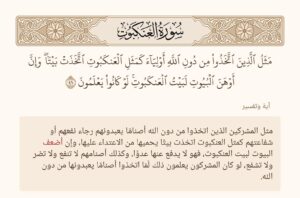 سُورَةُ العَنكَبُوتِ
مَثَلُ ٱلَّذِينَ ٱتَّخَذُوا۟ مِن دُونِ ٱللَّهِ أَوْلِيَآءَ كَمَثَلِ ٱلْعَنكَبُوتِ ٱتَّخَذَتْ بَيْتًا ۖ وَإِنَّ
أَوْهَنَ ٱلْبُيُوتِ لَبَيْتُ ٱلْعَنكَبُوتِ ۖ لَوْ كَانُوا۟ يَعْلَمُونَ ٤١
آية وتفسير
مثل المشركين الذين اتخذوا من دون الله أصنامًا يعبدونهم رجاء نفعهم أو
شفاعتهم كمثل العنكبوت اتخذت بيتًا يحميها من الاعتداء عليها، وإن أضعف
البيوت لبيت العنكبوت، فهو لا يدفع عنها عدوًا، وكذلك أصنامهم لا تنفع ولا تضر
ولا تشفع، لو كان المشركون يعلمون ذلك لمَا اتخذوا أصنامًا يعبدونها من دون
الله.